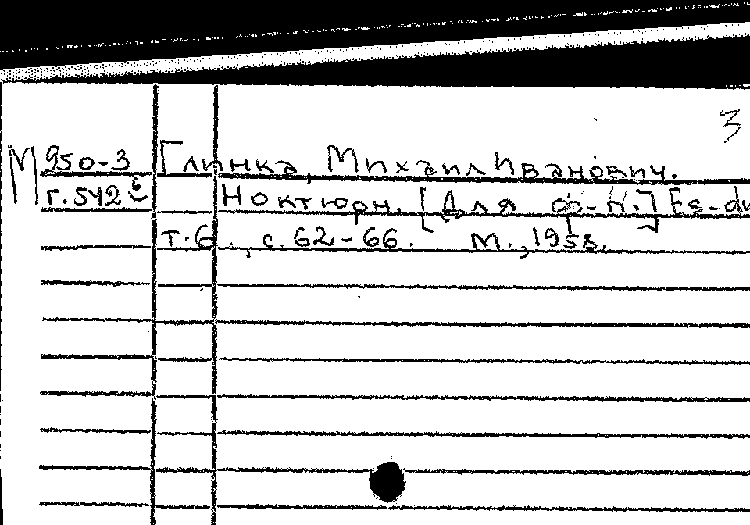 3
М 950-3 Глинка, Михаил Иванович.
г.542 б Ноктюрн. [Для ф-п.] Es-du
т.6., с. 62-66. М., 1958.